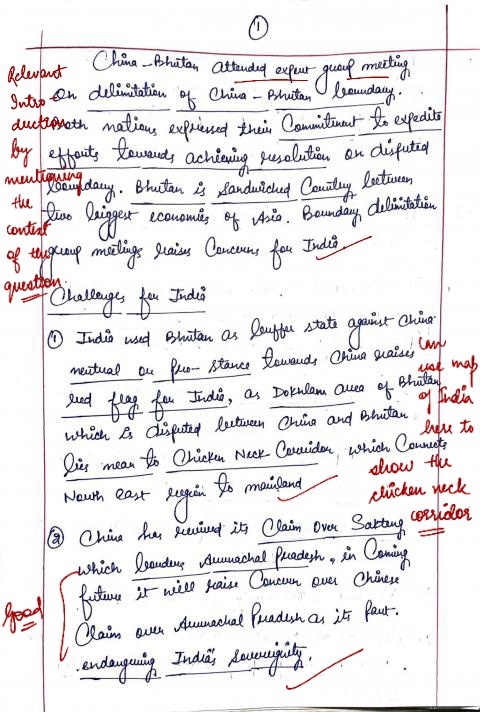 1
China-Bhutan attended expert group meeting
on delimitation of China-Bhutan boundary.
Both nations expressed their Commitment to expedite
efforts towards achieving resolution on disputed
boundary. Bhutan is Sandwiched Country between
two biggest economies of Asia. Boundary delimitation
group meetings raises Concerns for India.
Relevant
Intro-
duction
by
mentioning
the
context
of the
question
Challenges for India
1 India used Bhutan as buffer state against China
neutral or pro-stance towards China raises
red flag for India, as Doklam area of Bhutan
which is disputed between China and Bhutan
lies near to Chicken Neck Corridor, which Connects
North east region to mainland
can
use map
of India
here to
show the
chicken neck
corridor
2 China has revived its Claim over Sakteng
which borders Arunachal Pradesh, in Coming
future it will raise Concern over Chinese
Claim over Arunachal Pradesh as its Part.
endangering India's sovereignity.
Good